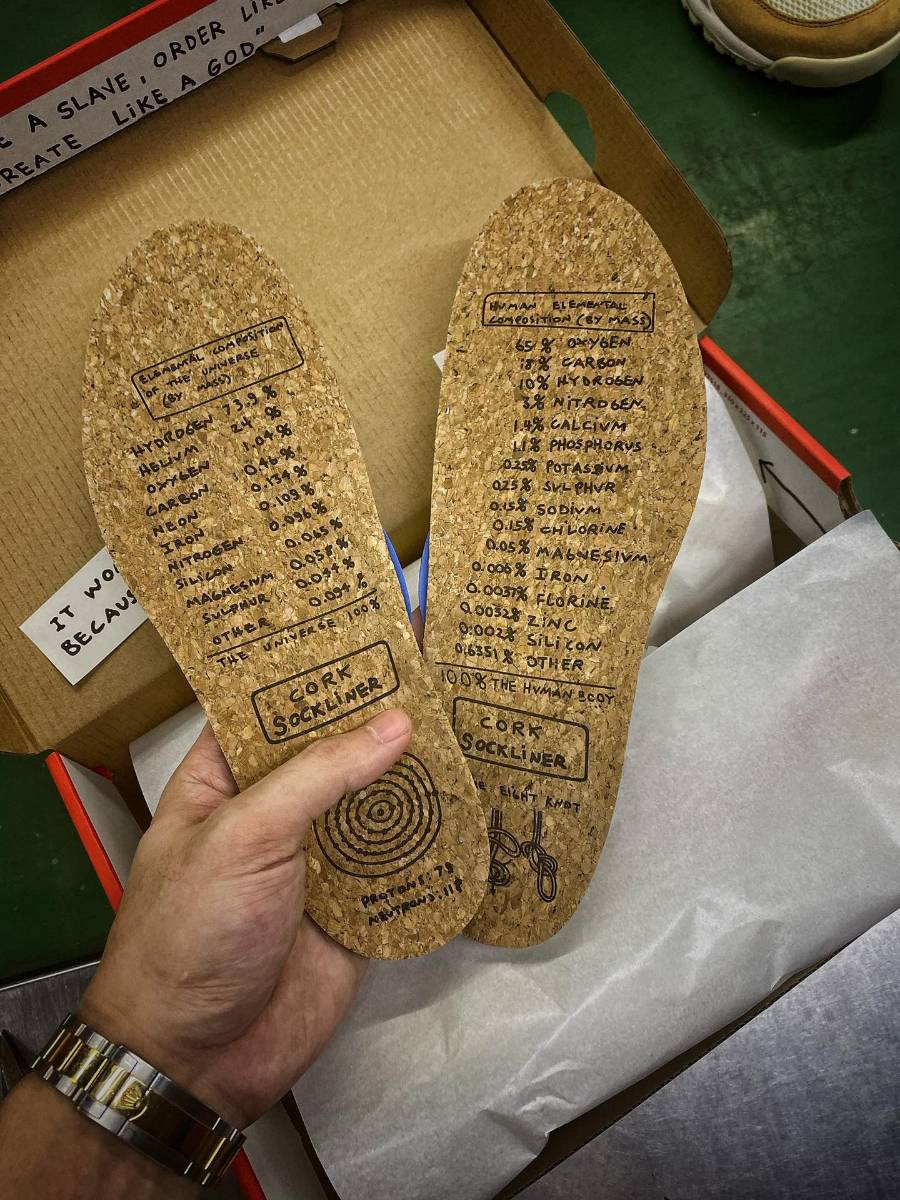 E A SLAVE, ORDER LIKE
REATE LIKE A GOD"
ELEMENTAL COMPOSITION
OF THE UNIVERSE
(BY MASS)
HYDROGEN 73.9 %
HELIUM 24 %
OXYGEN 1.04 %
CARBON 0.46 %
NEON 0.134 %
IRON 0.109 %
NITROGEN 0.096 %
SILICON 0.065 %
MAGNESIUM 0.058 %
SULPHUR 0.044 %
OTHER
THE UNIVERSE 100%
CORK
SOCKLINER
PROTONS:
NEUTRONS:
HUMAN ELEMENTAL
COMPOSITION (BY MASS)
65 % OXYGEN
18 % CARBON
10% HYDROGEN
3% NITROGEN
1.4% CALCIUM
1.1% PHOSPHORUS
0.25% POTASSIUM
0.25% SULPHUR
0.15% SODIUM
0.15% CHLORINE
0.05% MAGNESIUM
0.006% IRON
0.0037% FLORINE
0.0032% ZINC
0.002% SILICON
0.6351% OTHER
100% THE HUMAN BODY
CORK
SOCKLINER
EIGHT KNOT
IT WO
BECAUS